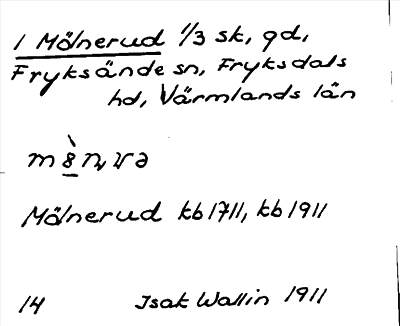 1 Mölnerud 1/3 sk, gd,
Fryksände sn, Fryksdals
hd, Värmlands län
Mölnerud kb 1711, kb 1911
14 Isak Wallin 1911